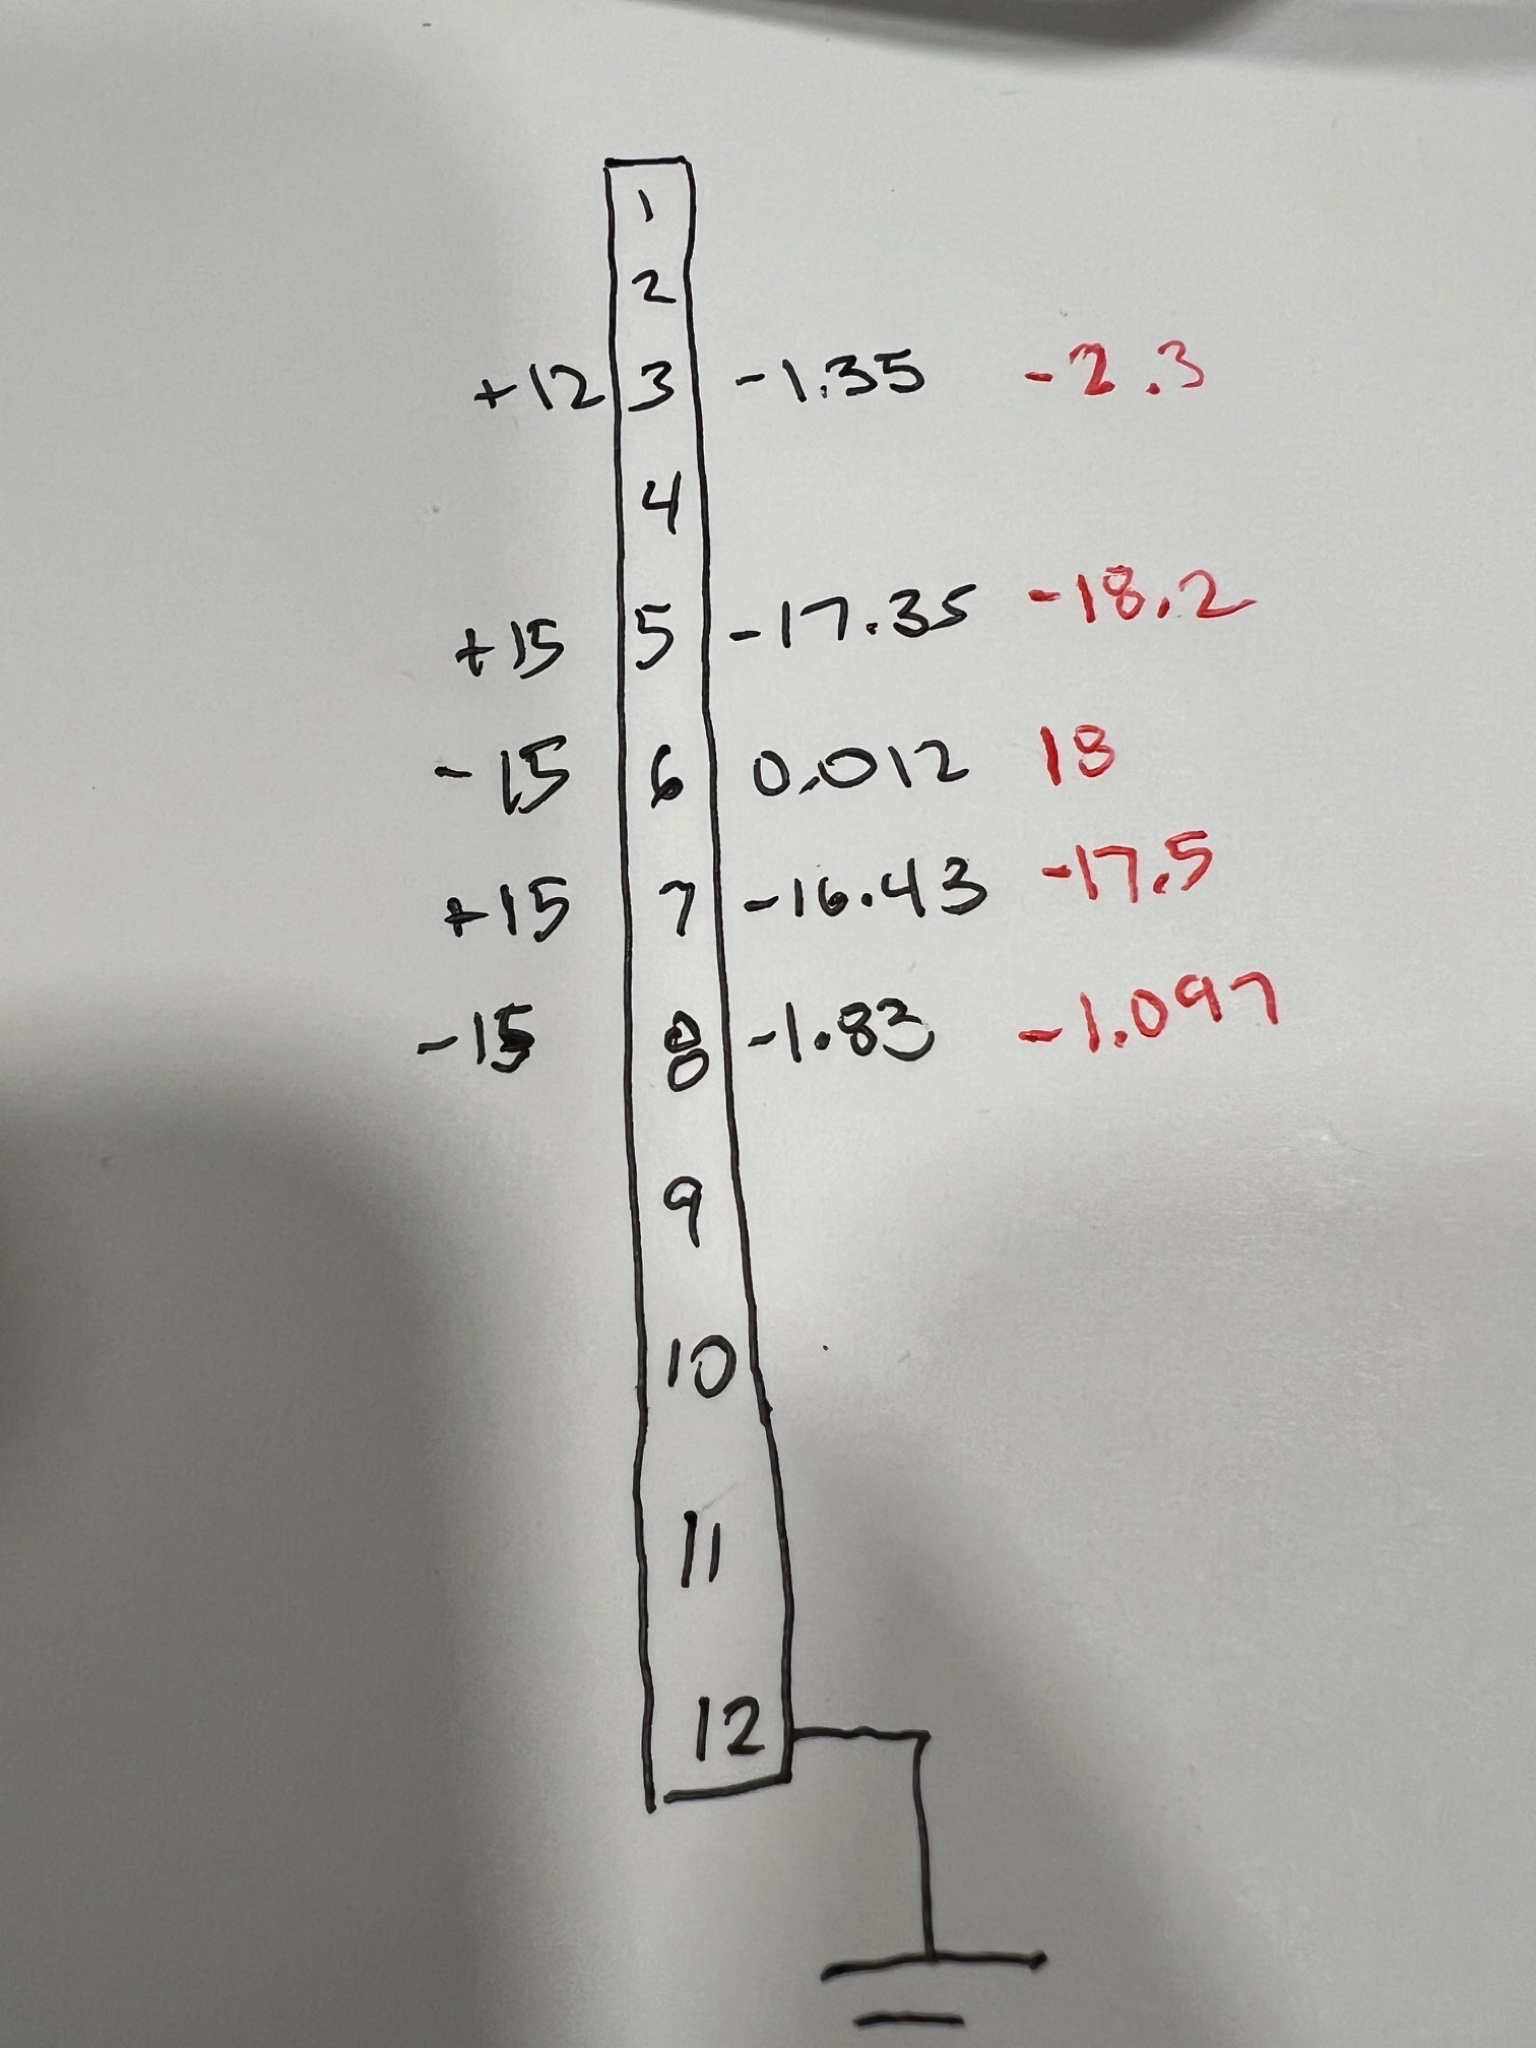 1
2
+12 3 -1.35 -2.3
4
+15 5 -17.35 -18.2
-15 6 0.012 18
+15 7 -16.43 -17.5
-15 8 -1.83 -1.097
9
10
11
12